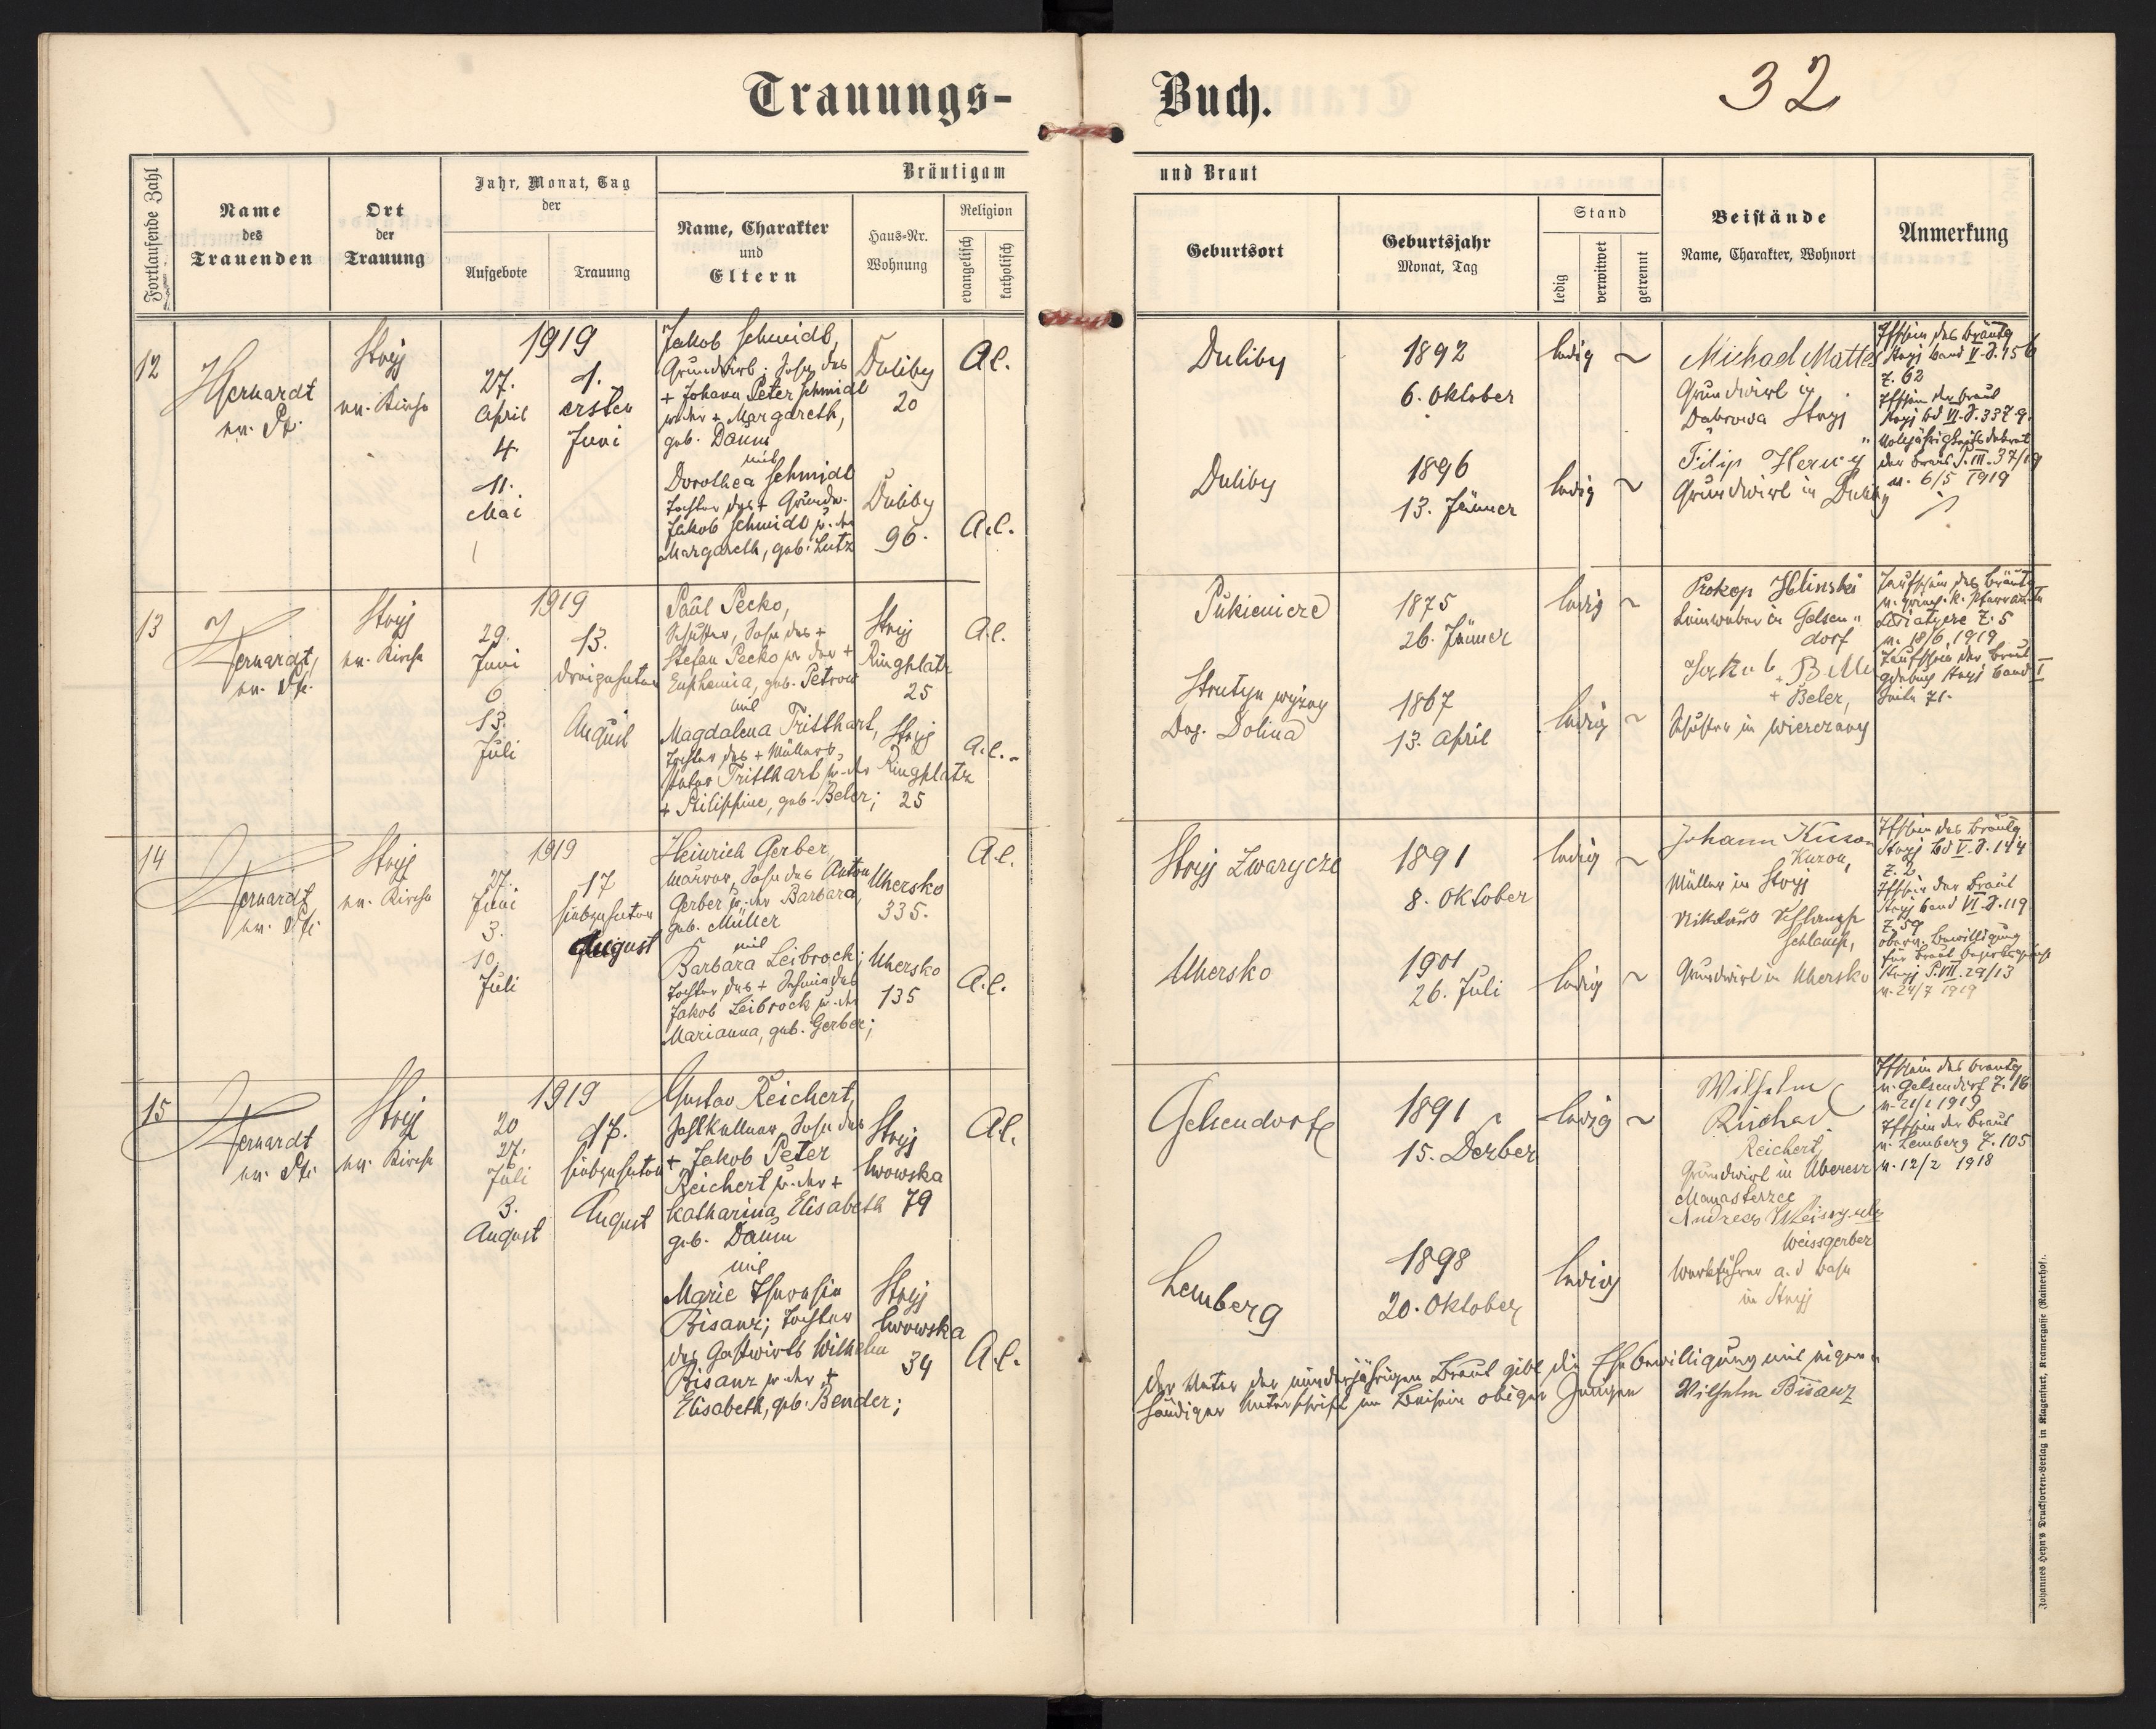 Trauungs-
Buch.
32
Fortlaufende Zahl
Name
des
Trauenden
Ort
der
Trauung
Jahr, Monat, Tag
der
Aufgebote
Trauung
Bräutigam
und Braut
Name, Charakter
und
Eltern
Haus-Nr.
Wohnung
Religion
evangelisch
katholisch
Geburtsort
Geburtsjahr
Monat, Tag
Stand
ledig
verwitwet
getrennt
Beistände
Name, Charakter, Wohnort
Anmerkung
12
Stryj
ev. Kirche
1919
27.
April
4.
11.
Mai
1.
ersten
Juni
Jakob Schmidt,
Grundwirt; Sohn des
+ Johann Peter Schmidt
u. der + Margareth,
geb. Daum
mit
Dorothea Schmidt
Tochter des + Grundw.
Jakob Schmidt u. der
Margareth, geb. Lutz
Duliby
20
Duliby
96.
A.C.
A.C.
Duliby
1892
6. Oktober
ledig
Duliby
1896
13. Jänner
ledig
Grundwirt in
Dabrowa Stryj
Filip
Grundwirt in Duliby
Tfschein des Bräutg
Stryj Band V. S. 156
Z. 62
Tfschein der Braut
Stryj Bd VI. S. 337 9.
der Braut P. III. 37/19
v. 6/5 1919
13
ev. Pfr.
Stryj
ev. Kirche
1919
29.
Juni
6
13.
Juli
13.
dreizehnten
August
Paul Pecko,
Schuster, Sohn des +
Stefan Pecko u. der +
Euphemia, geb. Petrow
mit
Magdalena Tritthart,
Tochter des + Müllers
Peter Tritthart u. der
+ Philippine, geb. Beler;
Stryj
Ringplatz
25
Stryj
Ringplatz
25
A.C.
A.C.
Pukienicze
1875
26. Jänner
ledig
Strutyn wyzny
Bez. Dolina
1867
13. April
ledig
Prokop Hlinski
Leinweber in Gelsen-
dorf
+ Beler,
Schuster in Wierczany
Taufschein des Bräutg
v. griech. k. Pfarramte
Z. 5
v. 18/6 1919
Taufschein der Braut
Stryj Band I
Seite 71.
14
ev. Pfr.
Stryj
ev. Kirche
1919
27.
Juni
3.
10.
Juli
17
siebzehnten
August
Heinrich Gerber,
Maurer, Sohn des Anton
Gerber u. der Barbara,
geb. Müller
mit
Barbara Leibrock;
Tochter des + Schmiedes
Jakob Leibrock u. der
Marianna, geb. Gerber;
Uhersko
335.
Uhersko
135
A.C.
A.C.
Stryj Zwarycze
1891
8. Oktober
ledig
Uhersko
1901
26. Juli
ledig
Johann
Kuron,
Müller in Stryj
Nikolaus
Schlamp,
Grundwirt in Uhersko
Tfschein des Bräutg
Stryj Bd V. S. 144
Z. 2
Tfschein der Braut
Stryj Band VI. S. 119
Z. 59
oberv. Bewilligung
für Braut Bezirksgericht
Stryj P. VII. 29/13
v. 24/7 1919
15
ev. Pfr.
Stryj
ev. Kirche
1919
20
27.
Juli
3.
August
17.
siebzehnten
August
Gustav Reichert,
Zahlkellner, Sohn des
+ Jakob Peter
Reichert u. der +
Katharina Elisabeth
geb. Daum
mit
Marie Theresia
Bisanz; Tochter
des Gastwirts Wilhelm
Bisanz u. der +
Elisabeth, geb. Bender;
Stryj
Lwowska
79
Stryj
Lwowska
34
A.C.
A.C.
Gelsendorf
1891
15. Dezber
ledig
Lemberg
1898
20. Oktober
ledig
Wilhelm
Reichert,
Grundwirt in
Manasterzec
Andreas
Weissgerber
Werkführer a. d Bahn
in Stryj
Tfschein des Bräutg
v. Gelsendorf Z. 16
v. 21/1 1919
Tfschein der Braut
v. Lemberg Z. 105
v. 12/2 1918
Der Vater der minderjährigen Braut gibt die Ehebewilligung mit eigen-
händiger Unterschrift im Beisein obiger Zeugen Wilhelm Bisanz
Johannes Heyn's Drucksorten-Verlag in Klagenfurt, Kramergasse (Rainerhof).